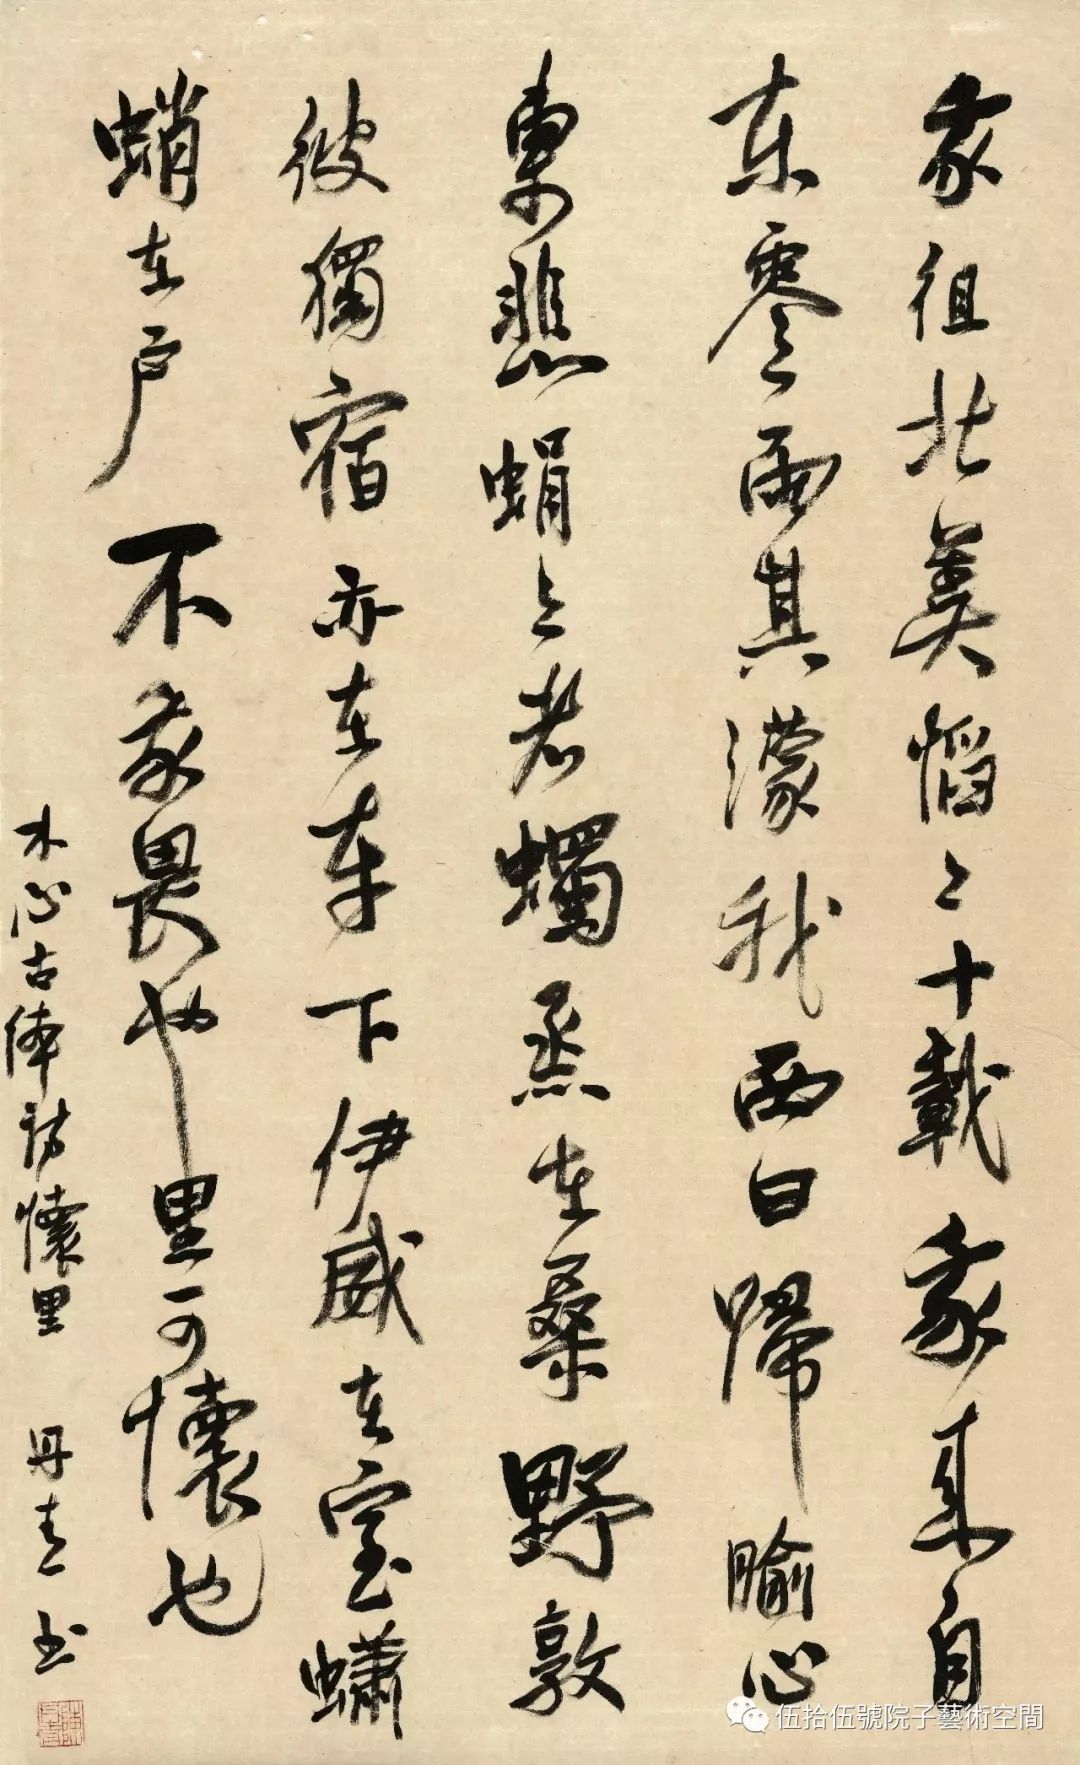 我徂北美慆〻十載我来自
东零雨其濛我西曰歸睮心
東悲蜎〻者蠋烝在桑野敦
彼獨宿亦在車下伊威在室蠨
蛸在户不我畏也里可懷也
木心古体詩懷里 丹青书
伍拾伍號院子藝術空間